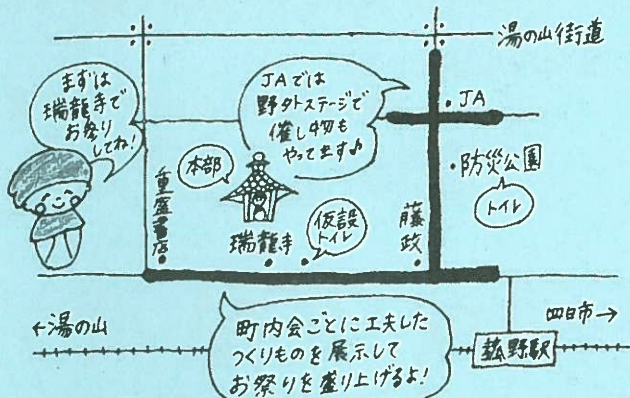 湯の山街道
まずは
瑞龍寺で
お祭り
してね!
JAでは
野外ステージで
催し物も
やってます♪
JA
本部
防災公園
トイレ
重盛書店
瑞龍寺
仮設
トイレ
藤政
←湯の山
町内会ごとに工夫した
つくりものを展示して
お祭りを盛り上げるよ!
四日市→
菰野駅